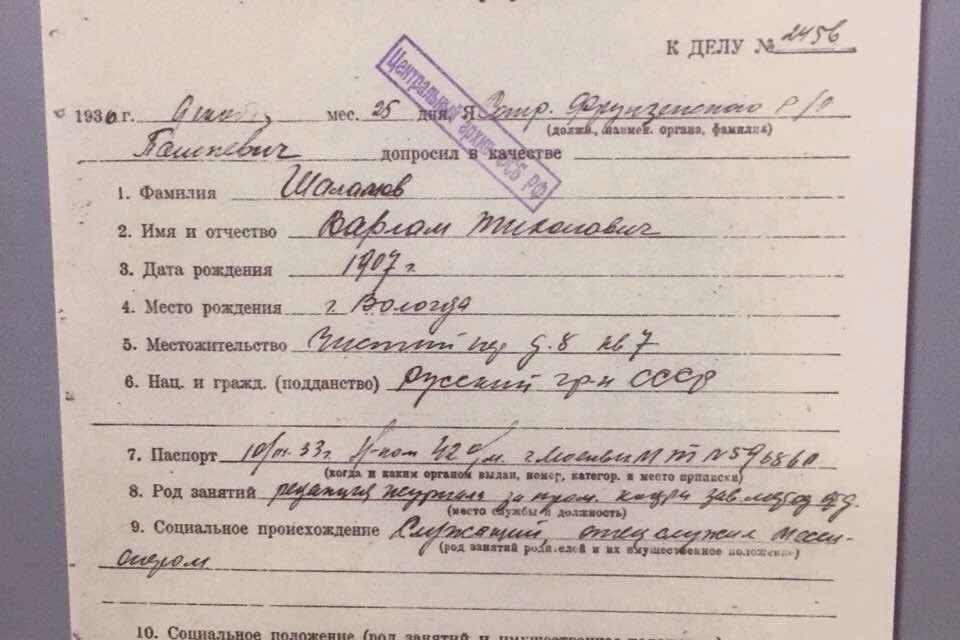 К ДЕЛУ № 2456
1936 г. Декабр мес. 25 дня. Я Сотр. Фрунзенского Р/О
(должн., наимен. органа, фамилия)
Пашкевич допросил в качестве
Центральный архив ФСБ РФ
1. Фамилия Шаламов
2. Имя и отчество Варлам Тихонович
3. Дата рождения 1907 г
4. Место рождения г. Вологда
5. Местожительство Чистый пер д. 8 кв 7
6. Нац. и гражд. (подданство) Русский гр-н СССР
7. Паспорт 33 г. 42 о/м. г. Москвы МТ № 596860
(когда и каким органом выдан, номер, категор. и место приписки)
8. Род занятий редакция журнала за пром. кадры зав. метод
(место службы и должность)
9. Социальное происхождение Служащий, отец служил
(род занятий родителей и их имущественное положение)
10. Социальное положение (род занятий и имущественное положение)